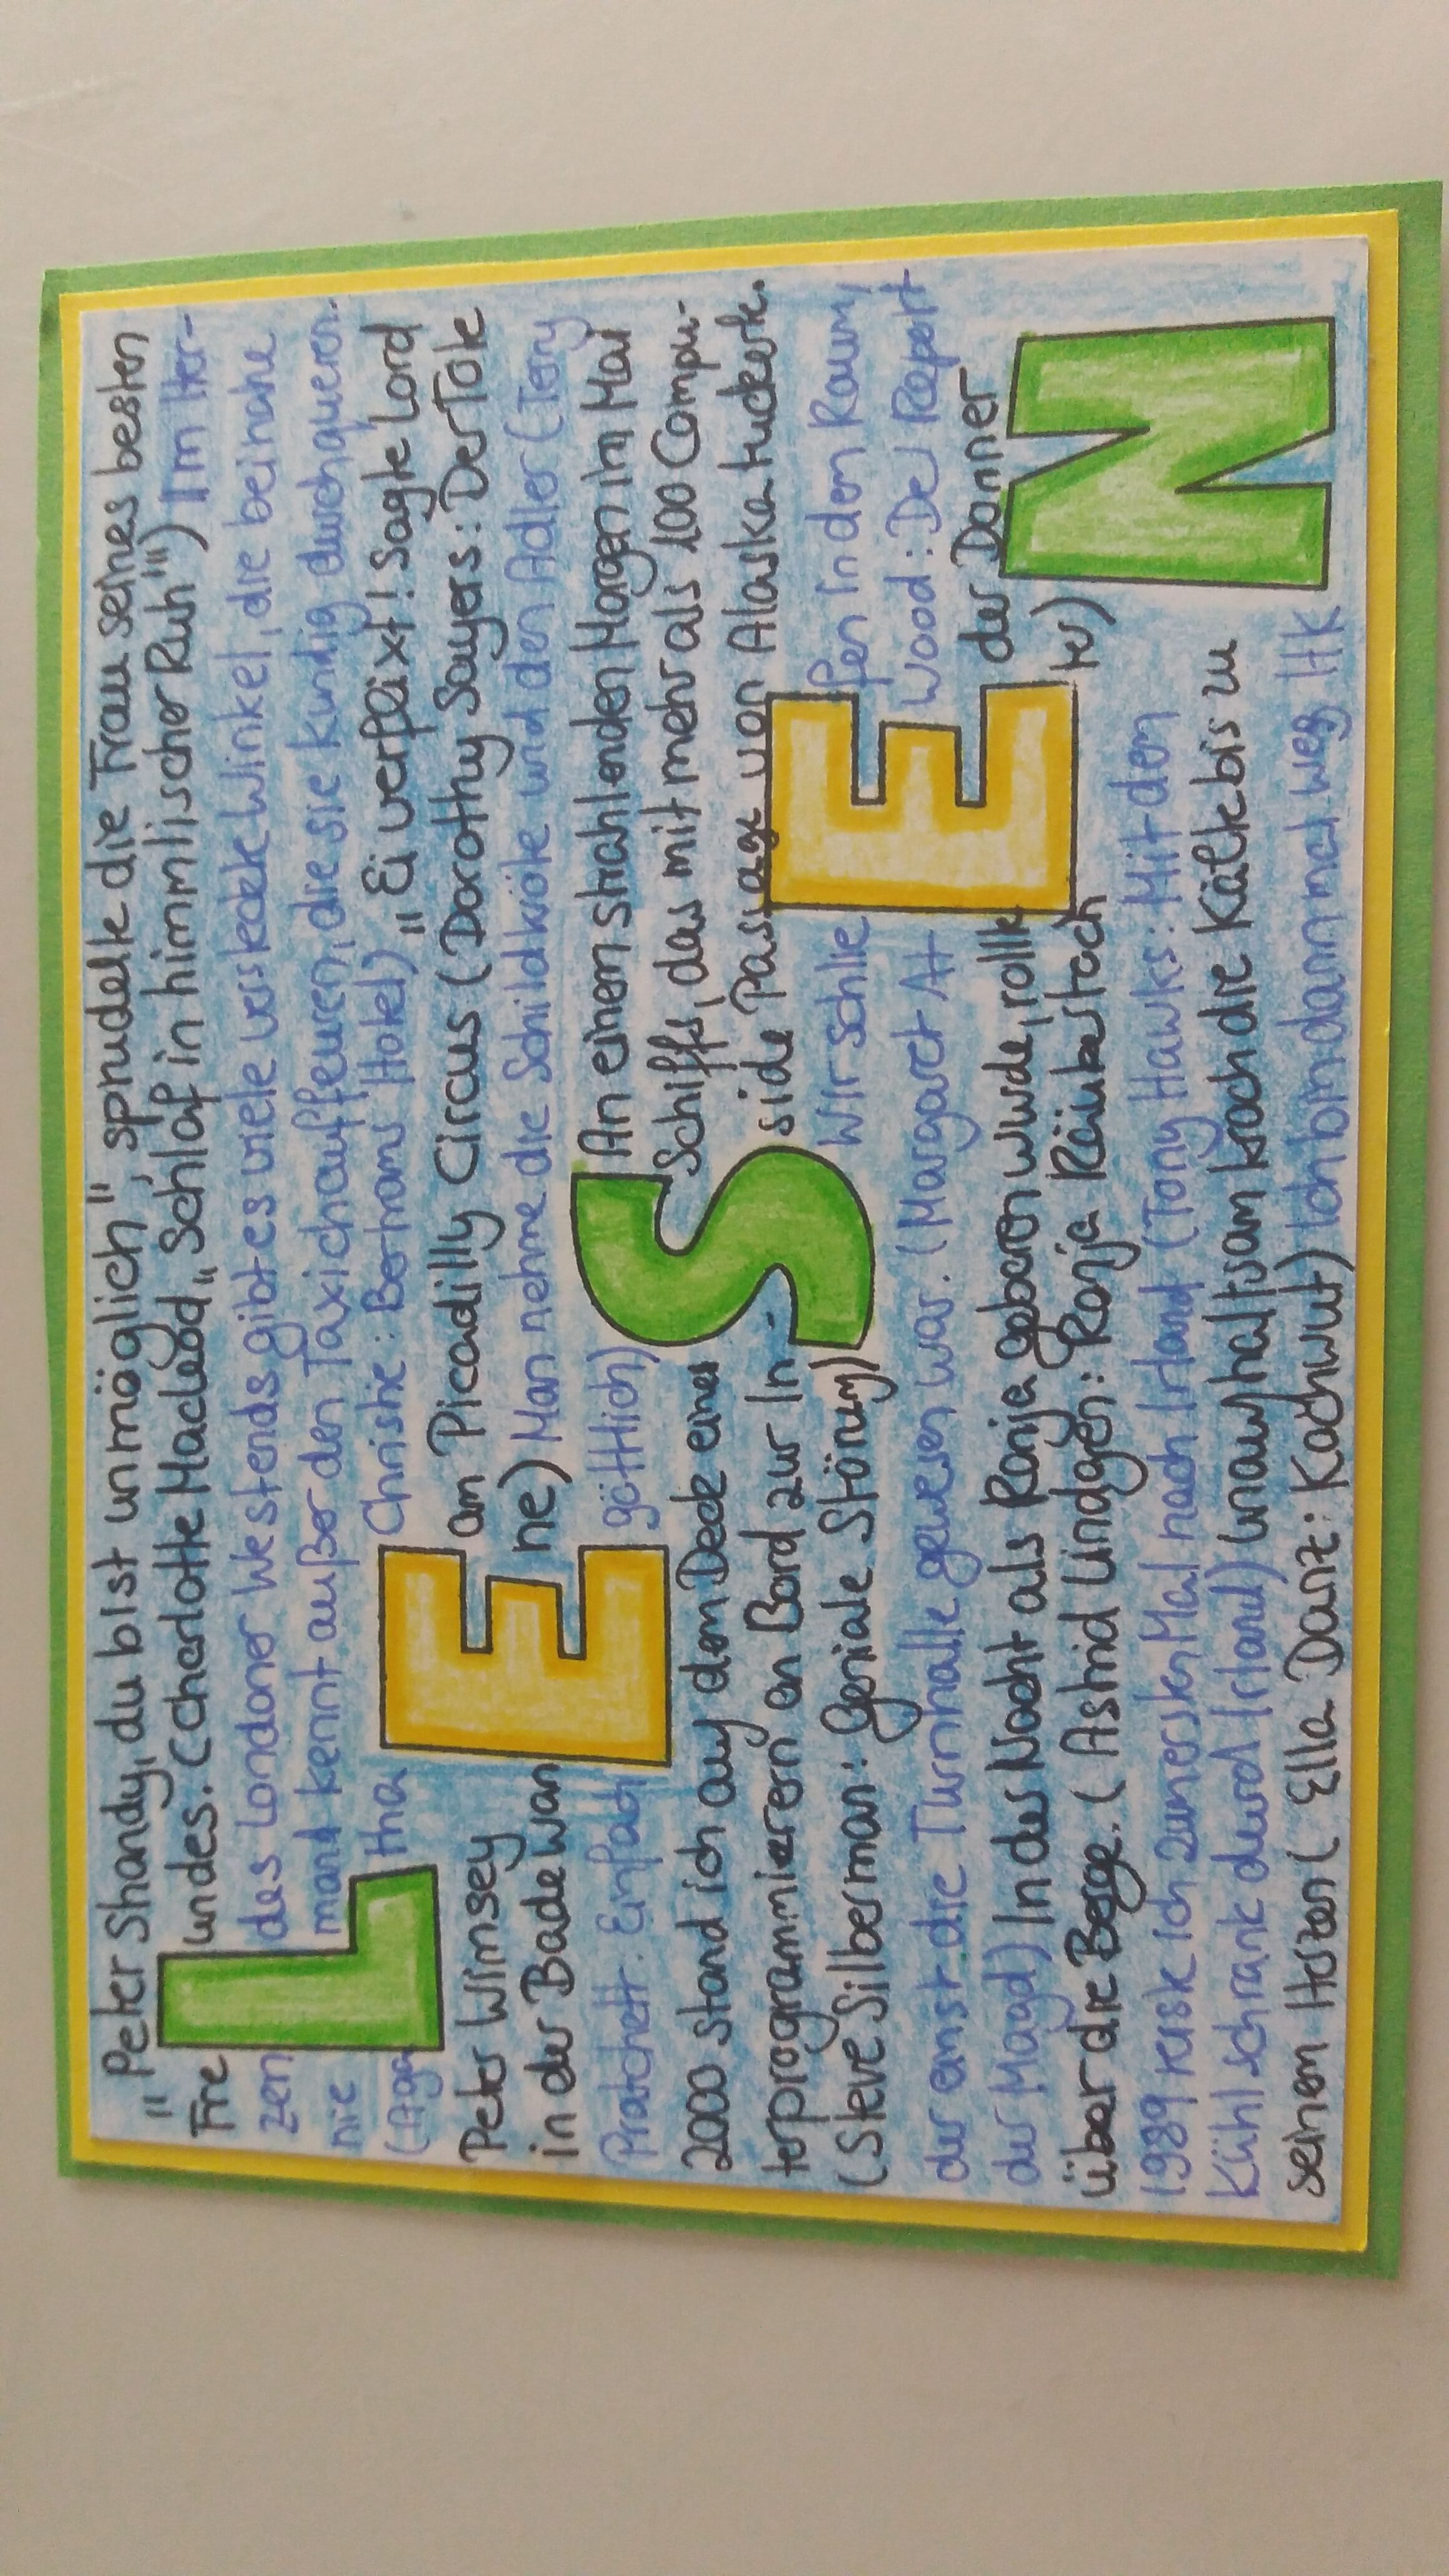 "Peter Shandy, du bist unmöglich", sprudelte die Frau seines besten
Freundes. (Charlotte MacLeod „Schlaf in himmlischer Ruh") Im Her-
zen des Londoner Westends gibt es viele versteckte Winkel, die beinahe
niemand kennt außer den Taxichauffeuren, die sie kundig durchqueren.
(Agatha Christie: Bertrams Hotel) „Ei verflixt! sagte Lord
Peter Wimsey am Picadilly Circus (Dorothy Sayers: Der Tote
in der Badewanne) Man nehme die Schildkröte und den Adler (Terry
Pratchett: Einfach göttlich) An einem strahlenden Morgen im Mai
2000 stand ich auf dem Deck eines Schiffs, das mit mehr als 100 Compu-
terprogrammierern an Bord zur In-side Passage von Alaska tuckerte.
(Steve Silberman: Geniale Störung) Wir schliefen in dem Raum,
der einst die Turnhalle gewesen war. (Margaret Atwood: Der Report
der Magd) In der Nacht als Ronja geboren wurde, rollte der Donner
über die Berge. (Astrid Lindgen: Ronja Räubertochter)
1989 reiste ich zum ersten Mal nach Irland (Tony Hawks: Mit dem
Kühlschrank durch Irland) Unaufhaltsam kroch die Kälte bis zu
seinem Herzen (Ella Danz: Kochwut) Ich bin dann mal weg HK
LESEN